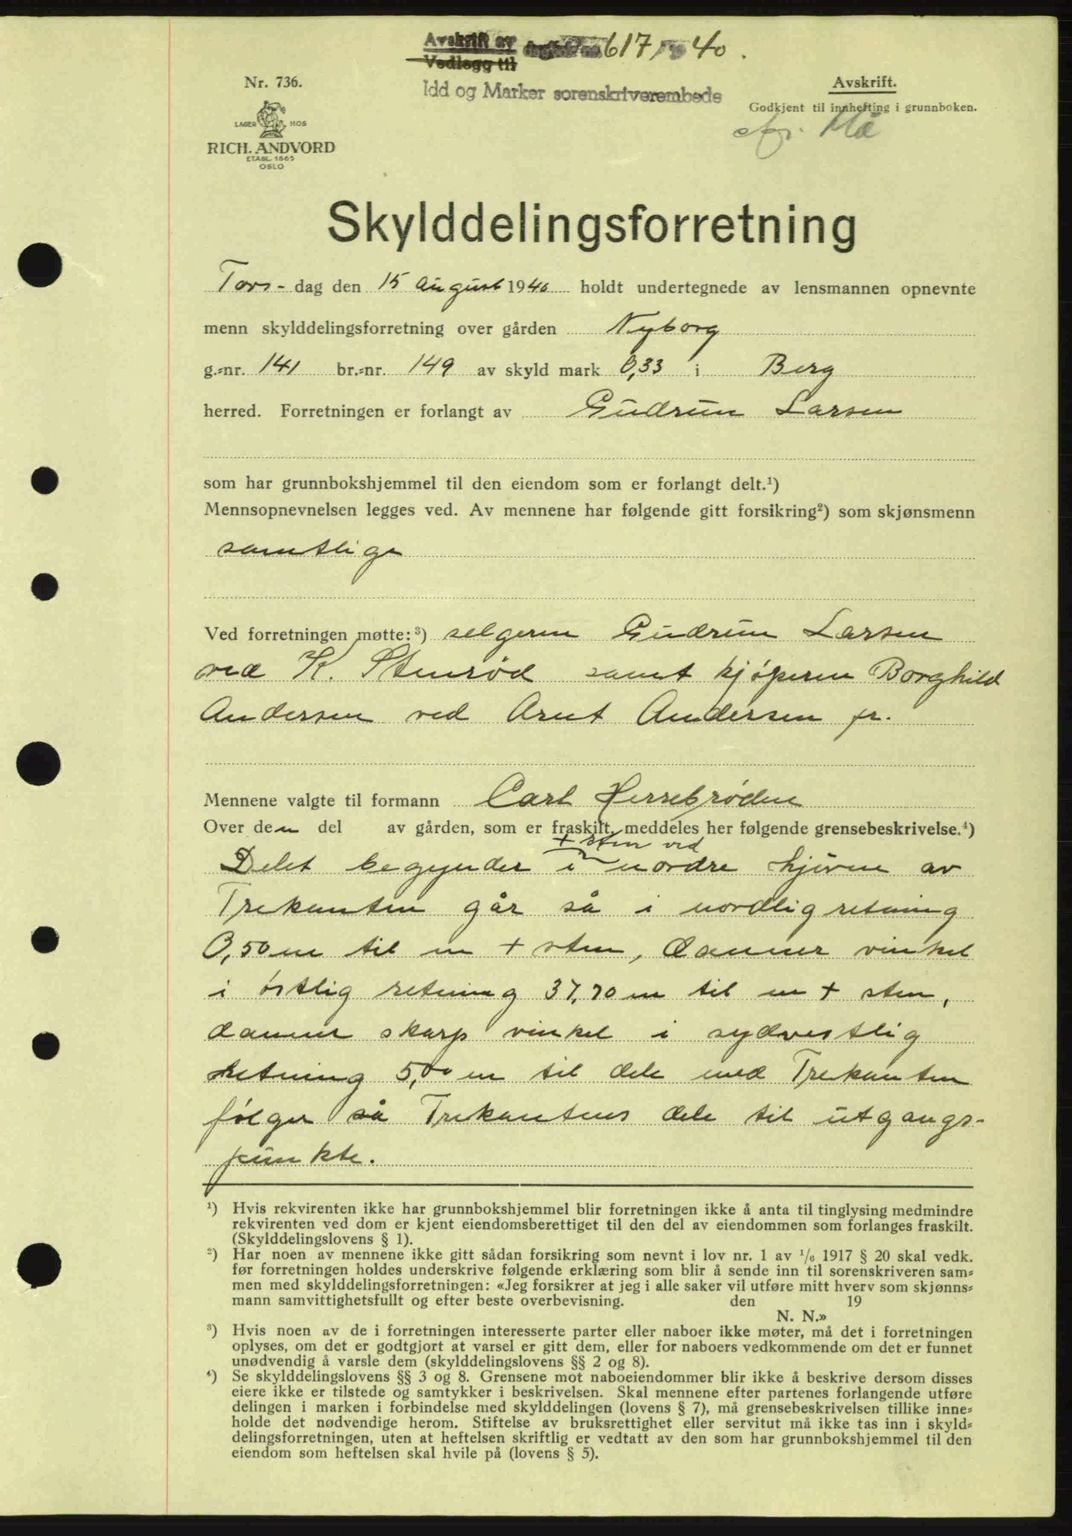 Avskrift av dagbok nr. 617/1940.
Vedlegg til
Idd og Marker sorenskriverembede
Nr. 736.
LAGER MOS
RICH. ANDVORD
ETABL. 1865
OSLO
Avskrift.
Godkjent til innhefting i grunnboken.
Skylddelingsforretning
Tors-dag den 15 august 1940 holdt undertegnede av lensmannen opnevnte
menn skylddelingsforretning over gården Nyborg
g.=nr. 141 br.=nr. 149 av skyld mark 0,33 i Berg
herred. Forretningen er forlangt av Gudrun Larsen
som har grunnbokshjemmel til den eiendom som er forlangt delt.¹)
Mennsopnevnelsen legges ved. Av mennene har følgende gitt forsikring²) som skjønsmenn
samtlige
Ved forretningen møtte:³) selgeren Gudrun Larsen
ved K. Stenrød samt kjøperen Borghild
Andersen ved Arnt Andersen jr.
Mennene valgte til formann Carl Herrebrøden
Over den del av gården, som er fraskilt, meddeles her følgende grensebeskrivelse.⁴)
+ sten ved
Delet begynder i nordre hjörne av
Trekanten går så i nordlig retning
0,50 m til en + sten, danner vinkel
i östlig retning 37,70 m til en + sten,
danner skarp vinkel i sydvestlig
retning 5,00 m til dele med Trekanten
følger så Trekantens dele til utgangs-
punkte.
¹) Hvis rekvirenten ikke har grunnbokshjemmel blir forretningen ikke å anta til tinglysing medmindre
rekvirenten ved dom er kjent eiendomsberettiget til den del av eiendommen som forlanges fraskilt.
(Skylddelingslovens § 1).
²) Har noen av mennene ikke gitt sådan forsikring som nevnt i lov nr. 1 av ¹/₆ 1917 § 20 skal vedk.
før forretningen holdes underskrive følgende erklæring som blir å sende inn til sorenskriveren sam=
men med skylddelingsforretningen: «Jeg forsikrer at jeg i alle saker vil utføre mitt hverv som skjønns=
mann samvittighetsfullt og efter beste overbevisning. den 19
N. N.»
³) Hvis noen av de i forretningen interesserte parter eller naboer ikke møter, må det i forretningen
oplyses, om det er godtgjort at varsel er gitt dem, eller for naboers vedkommende om det er funnet
unødvendig å varsle dem (skylddelingslovens §§ 2 og 8).
⁴) Se skylddelingslovens §§ 3 og 8. Grensene mot naboeiendommer blir ikke å beskrive dersom disses
eiere ikke er tilstede og samtykker i beskrivelsen. Skal mennene efter partenes forlangende utføre
delingen i marken i forbindelse med skylddelingen (lovens § 7), må grensebeskrivelsen tillike inne=
holde det nødvendige herom. Stiftelse av bruksrettighet eller servitut må ikke tas inn i skyld=
delingsforretningen, uten at heftelsen skriftlig er vedtatt av den som har grunnbokshjemmel til den
eiendom som heftelsen skal hvile på (lovens § 5).